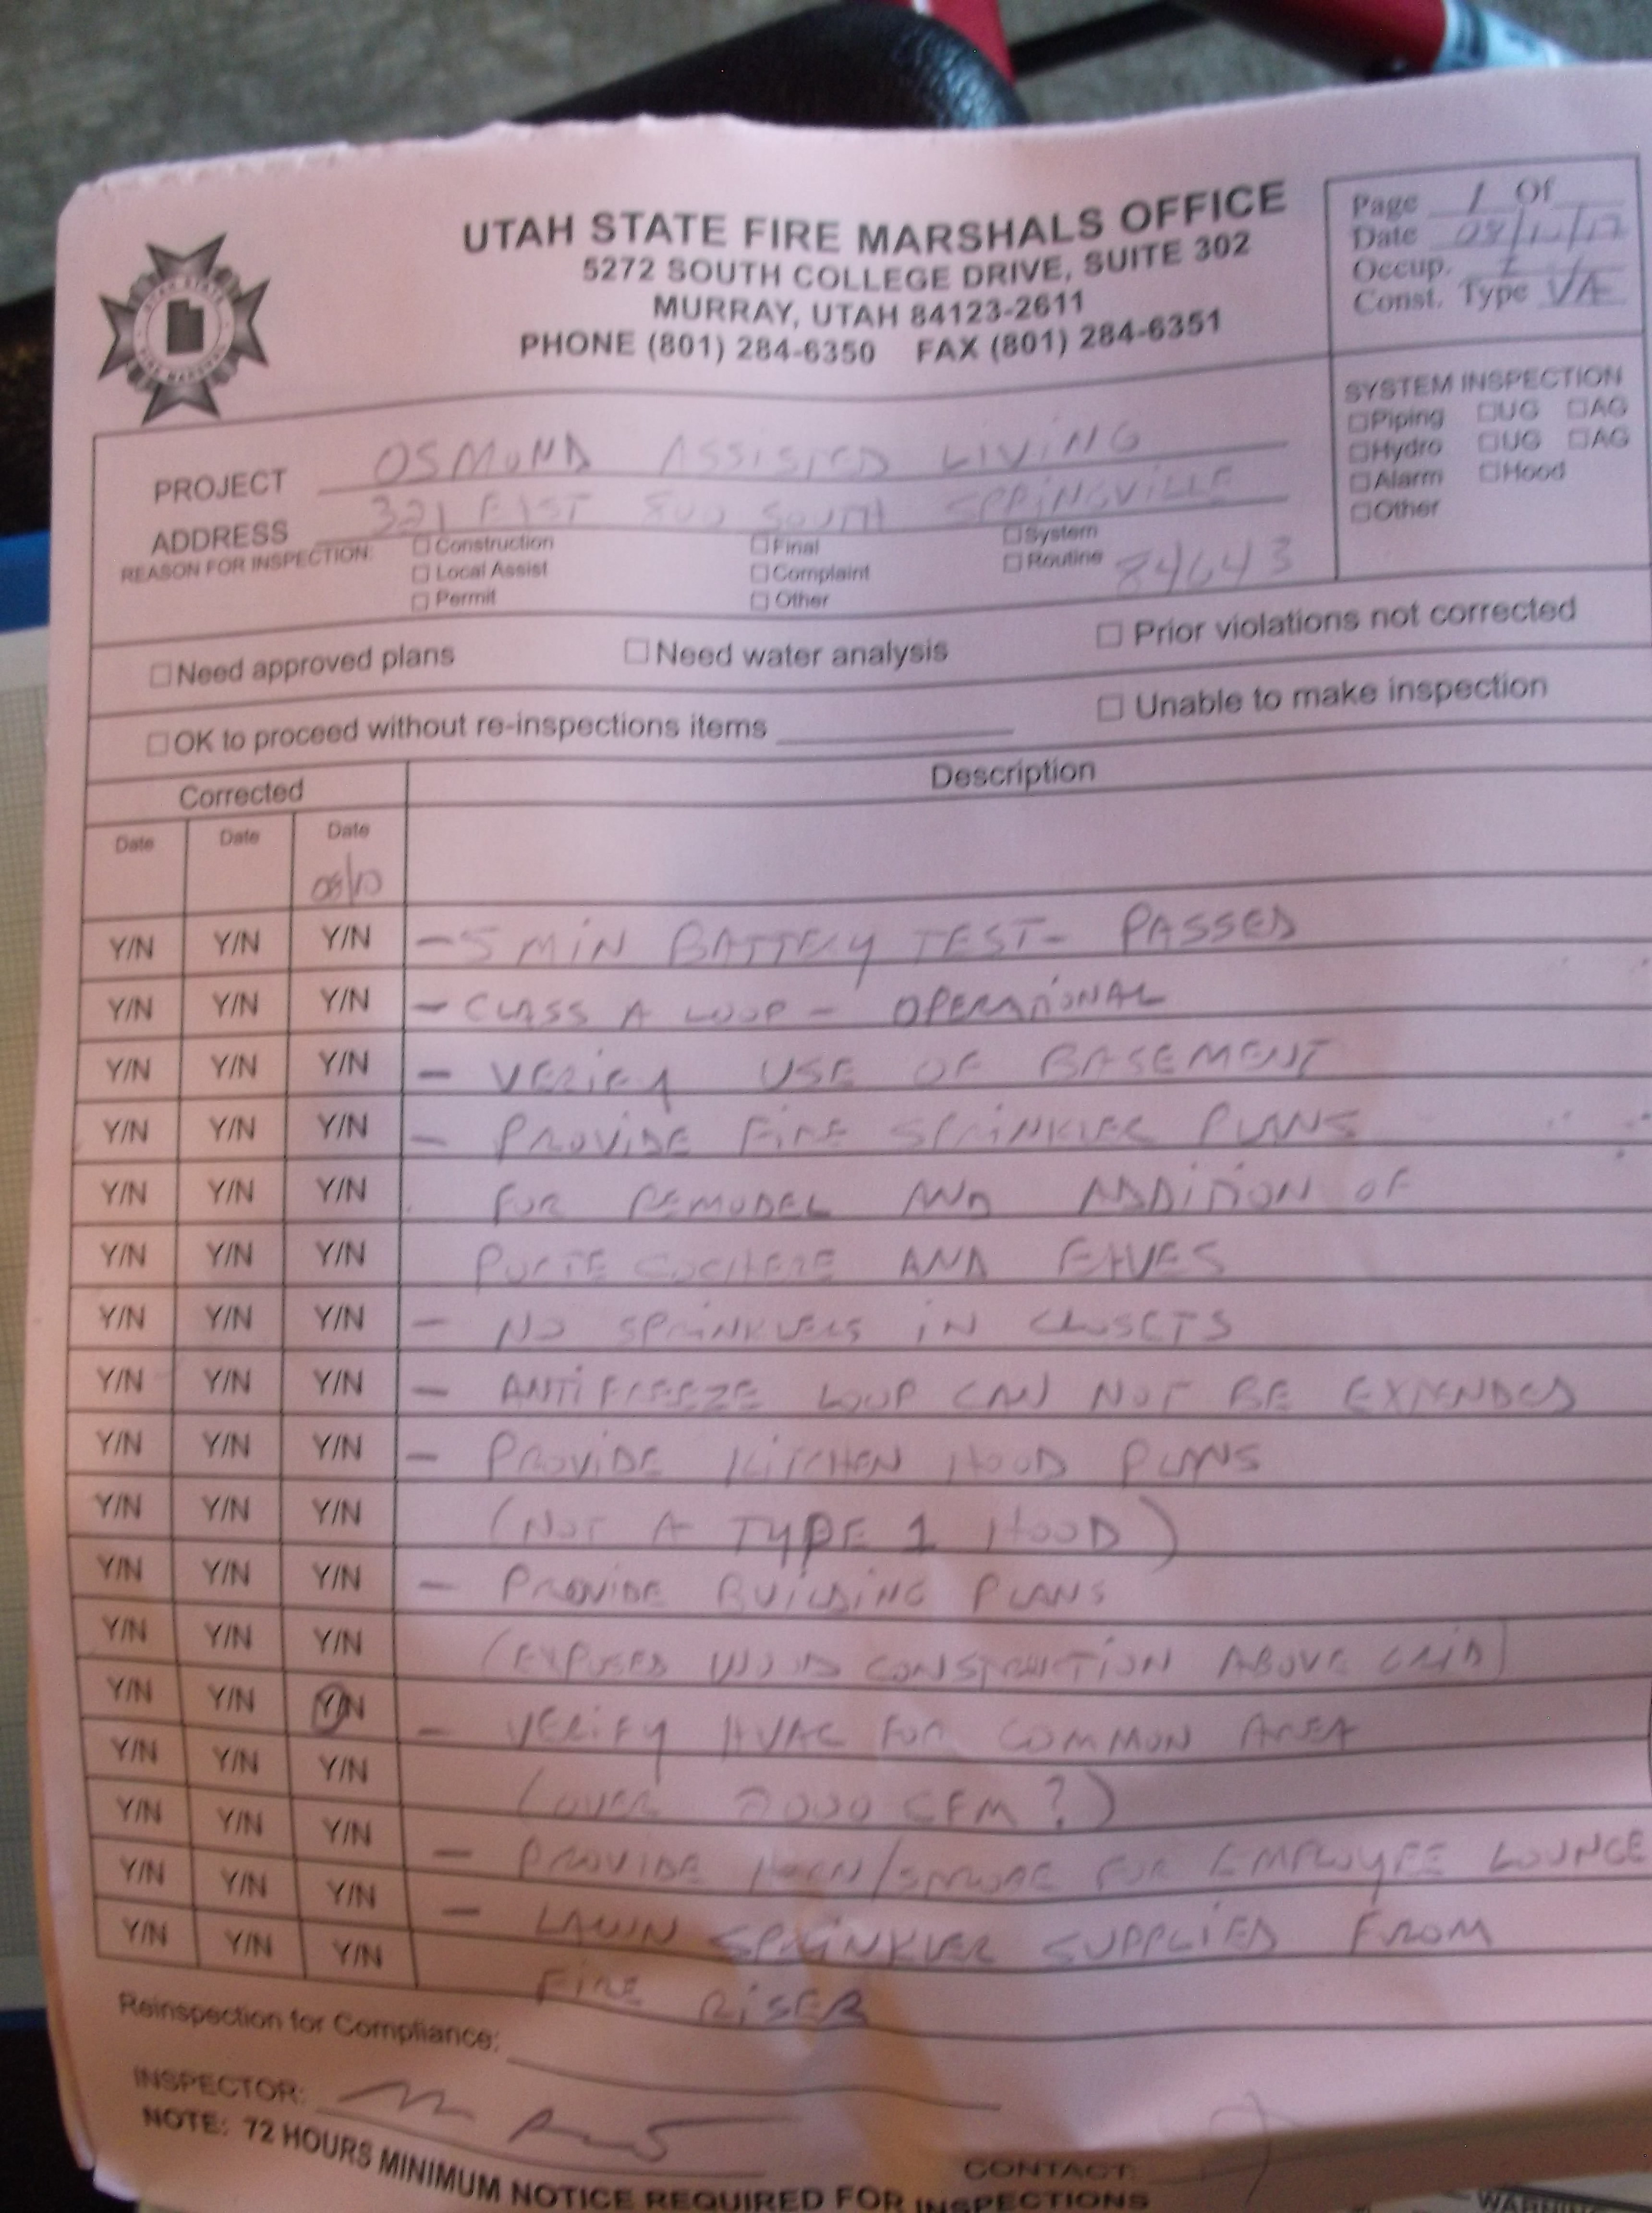 UTAH STATE FIRE MARSHALS OFFICE
5272 SOUTH COLLEGE DRIVE, SUITE 302
MURRAY, UTAH 84123-2611
PHONE (801) 284-6350 FAX (801) 284-6351
UTAH STATE
FIRE MARSHAL
Page 1 Of
Date
Occup. I
Const. Type
SYSTEM INSPECTION
□Piping □UG □AG
□Hydro □UG □AG
□Alarm □Hood
□Other
PROJECT OSMOND ASSISTED LIVING
ADDRESS 321 EAST 800 SOUTH SPRINGVILLE
REASON FOR INSPECTION: □ Construction □ Final □ System
□ Local Assist □ Complaint □ Routine
□ Permit □ Other
□ Need approved plans □ Need water analysis □ Prior violations not corrected
□ OK to proceed without re-inspections items □ Unable to make inspection
Corrected Description
Date Date Date
08/10
Y/N Y/N Y/N - 5 MIN BATTERY TEST - PASSED
Y/N Y/N Y/N - CLASS A LOOP - OPERATIONAL
Y/N Y/N Y/N - VERIFY USE OF BASEMENT
Y/N Y/N Y/N - PROVIDE FIRE SPRINKLER PLANS
Y/N Y/N Y/N FOR REMODEL AND ADDITION OF
Y/N Y/N Y/N PORTE COCHERE AND EAVES
Y/N Y/N Y/N - NO SPRINKLERS IN CLOSETS
Y/N Y/N Y/N - ANTIFREEZE LOOP CAN NOT BE EXTENDED
Y/N Y/N Y/N - PROVIDE KITCHEN HOOD PLANS
Y/N Y/N Y/N (NOT A TYPE 1 HOOD)
Y/N Y/N Y/N - PROVIDE BUILDING PLANS
Y/N Y/N Y/N (EXPOSED WOOD CONSTRUCTION ABOVE GRID)
Y/N Y/N Y/N - VERIFY HVAC FOR COMMON AREA
Y/N Y/N Y/N (OVER 2000 CFM?)
Y/N Y/N Y/N - PROVIDE HORN/STROBE FOR EMPLOYEE LOUNGE
Y/N Y/N Y/N - LAWN SPRINKLER SUPPLIED FROM
Y/N Y/N Y/N FIRE RISER
Reinspection for Compliance:
INSPECTOR:
CONTACT:
NOTE: 72 HOURS MINIMUM NOTICE REQUIRED FOR INSPECTIONS